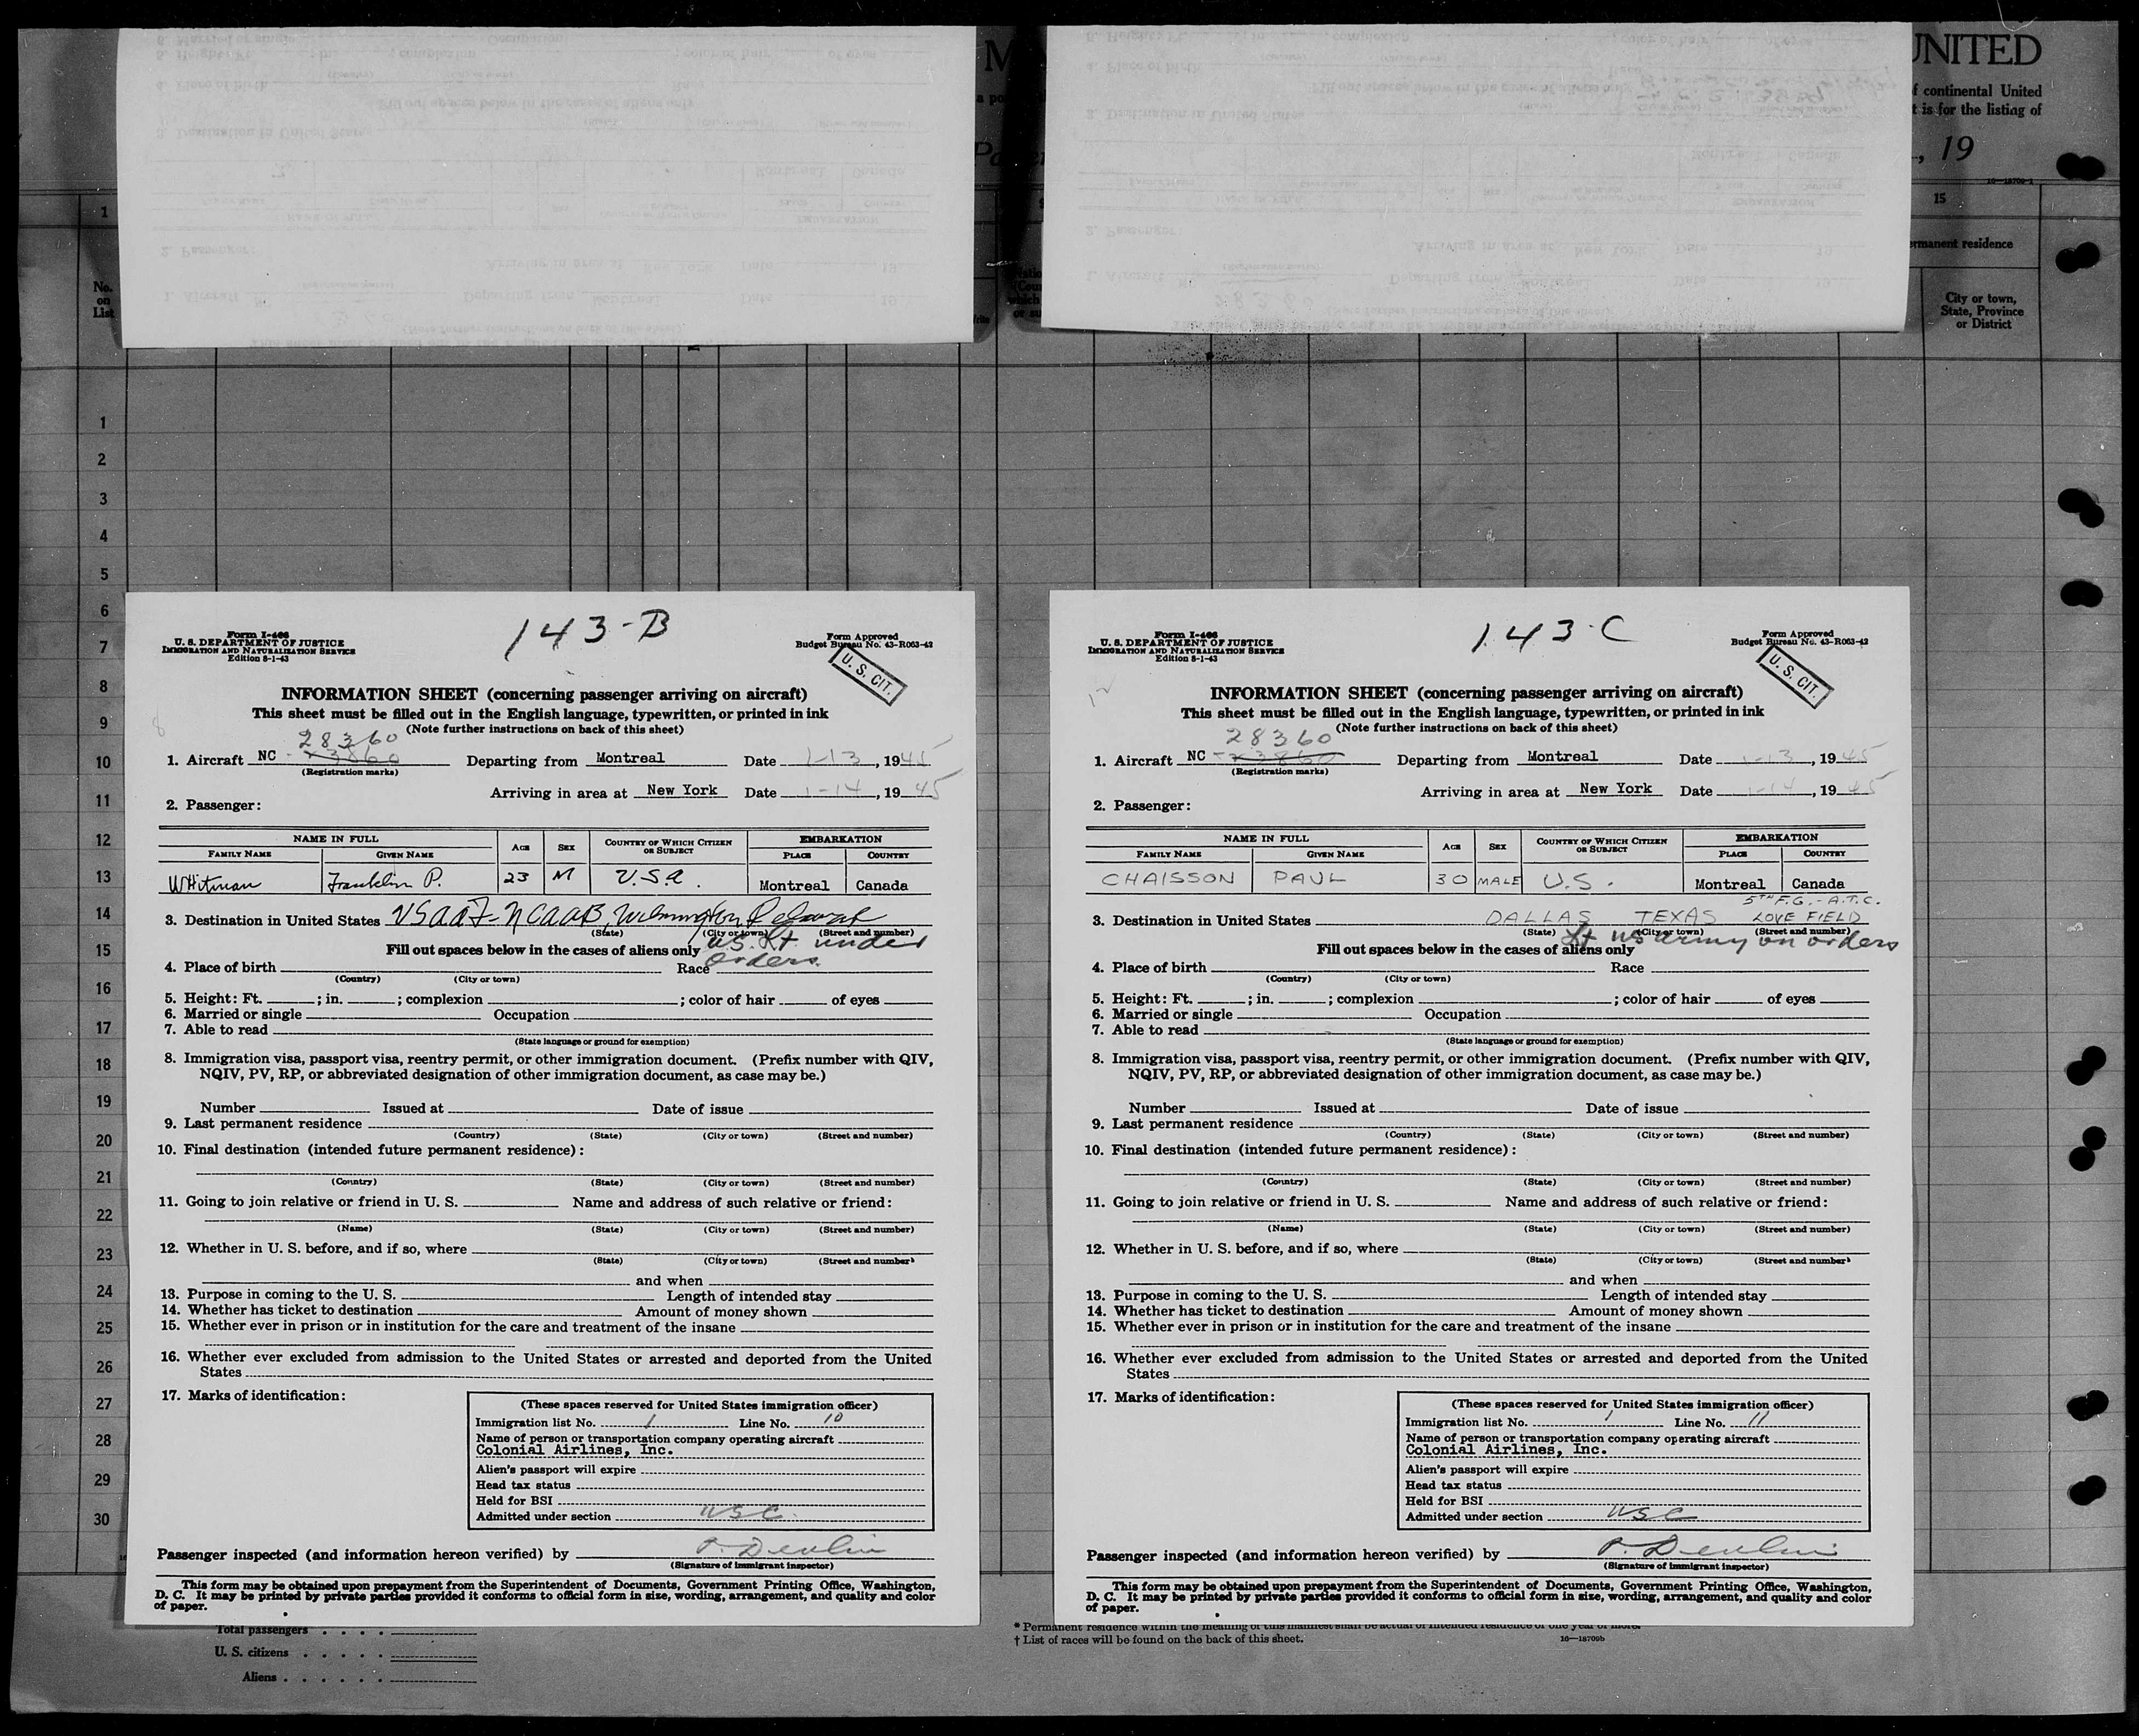 UNITED
f continental United
t is for the listing of
, 19
15
rmanent residence
City or town,
State, Province
or District
No.
on
List
1
1
2
3
4
5
6
7
8
9
10
11
12
13
14
15
16
17
18
19
20
21
22
23
24
25
26
27
28
29
30
143-B
Form I-466
U. S. DEPARTMENT OF JUSTICE
IMMIGRATION AND NATURALIZATION SERVICE
Edition 8-1-43
Form Approved
Budget Bureau No. 43-R063-42
U. S. CIT.
INFORMATION SHEET (concerning passenger arriving on aircraft)
This sheet must be filled out in the English language, typewritten, or printed in ink
(Note further instructions on back of this sheet)
28360
1. Aircraft NC Departing from Montreal Date 1-13, 1945
(Registration marks)
Arriving in area at New York Date 1-14, 1945
2. Passenger:
NAME IN FULL AGE SEX COUNTRY OF WHICH CITIZEN OR SUBJECT EMBARKATION
FAMILY NAME GIVEN NAME PLACE COUNTRY
Whitman Franklin P. 23 M U.S.A. Montreal Canada
3. Destination in United States USAAF-NCAAB, Wilmington Delaware
(State) (City or town) (Street and number)
Fill out spaces below in the cases of aliens only U.S. Lt under
orders.
4. Place of birth Race
(Country) (City or town)
5. Height: Ft. ; in. ; complexion ; color of hair of eyes
6. Married or single Occupation
7. Able to read
(State language or ground for exemption)
8. Immigration visa, passport visa, reentry permit, or other immigration document. (Prefix number with QIV,
NQIV, PV, RP, or abbreviated designation of other immigration document, as case may be.)
Number Issued at Date of issue
9. Last permanent residence
(Country) (State) (City or town) (Street and number)
10. Final destination (intended future permanent residence):
(Country) (State) (City or town) (Street and number)
11. Going to join relative or friend in U. S. Name and address of such relative or friend:
(Name) (State) (City or town) (Street and number)
12. Whether in U. S. before, and if so, where
(State) (City or town) (Street and number)
and when
13. Purpose in coming to the U. S. Length of intended stay
14. Whether has ticket to destination Amount of money shown
15. Whether ever in prison or in institution for the care and treatment of the insane
16. Whether ever excluded from admission to the United States or arrested and deported from the United
States
17. Marks of identification:
(These spaces reserved for United States immigration officer)
Immigration list No. 1 Line No. 10
Name of person or transportation company operating aircraft
Colonial Airlines, Inc.
Alien's passport will expire
Head tax status
Held for BSI
Admitted under section USC
Passenger inspected (and information hereon verified) by P. Devlin
(Signature of immigrant inspector)
This form may be obtained upon prepayment from the Superintendent of Documents, Government Printing Office, Washington,
D. C. It may be printed by private parties provided it conforms to official form in size, wording, arrangement, and quality and color
of paper.
143-C
Form I-466
U. S. DEPARTMENT OF JUSTICE
IMMIGRATION AND NATURALIZATION SERVICE
Edition 8-1-43
Form Approved
Budget Bureau No. 43-R063-42
U. S. CIT.
12
INFORMATION SHEET (concerning passenger arriving on aircraft)
This sheet must be filled out in the English language, typewritten, or printed in ink
(Note further instructions on back of this sheet)
28360
1. Aircraft NC Departing from Montreal Date 1-13, 1945
(Registration marks)
Arriving in area at New York Date 1-14, 1945
2. Passenger:
NAME IN FULL AGE SEX COUNTRY OF WHICH CITIZEN OR SUBJECT EMBARKATION
FAMILY NAME GIVEN NAME PLACE COUNTRY
CHAISSON PAUL 30 MALE U.S. Montreal Canada
5TH F.G. - A.T.C.
3. Destination in United States DALLAS TEXAS LOVE FIELD
(State) (City or town) (Street and number)
Lt US Army on orders
Fill out spaces below in the cases of aliens only
4. Place of birth Race
(Country) (City or town)
5. Height: Ft. ; in. ; complexion ; color of hair of eyes
6. Married or single Occupation
7. Able to read
(State language or ground for exemption)
8. Immigration visa, passport visa, reentry permit, or other immigration document. (Prefix number with QIV,
NQIV, PV, RP, or abbreviated designation of other immigration document, as case may be.)
Number Issued at Date of issue
9. Last permanent residence
(Country) (State) (City or town) (Street and number)
10. Final destination (intended future permanent residence):
(Country) (State) (City or town) (Street and number)
11. Going to join relative or friend in U. S. Name and address of such relative or friend:
(Name) (State) (City or town) (Street and number)
12. Whether in U. S. before, and if so, where
(State) (City or town) (Street and number)
and when
13. Purpose in coming to the U. S. Length of intended stay
14. Whether has ticket to destination Amount of money shown
15. Whether ever in prison or in institution for the care and treatment of the insane
16. Whether ever excluded from admission to the United States or arrested and deported from the United
States
17. Marks of identification:
(These spaces reserved for United States immigration officer)
Immigration list No. 1 Line No. 11
Name of person or transportation company operating aircraft
Colonial Airlines, Inc.
Alien's passport will expire
Head tax status
Held for BSI
Admitted under section USC
Passenger inspected (and information hereon verified) by P. Devlin
(Signature of immigrant inspector)
This form may be obtained upon prepayment from the Superintendent of Documents, Government Printing Office, Washington,
D. C. It may be printed by private parties provided it conforms to official form in size, wording, arrangement, and quality and color
of paper.
Total passengers
U. S. citizens
Aliens
* Permanent residence within the meaning of this manifest shall be actual or intended residence of one year or more.
† List of races will be found on the back of this sheet.
16—18709b